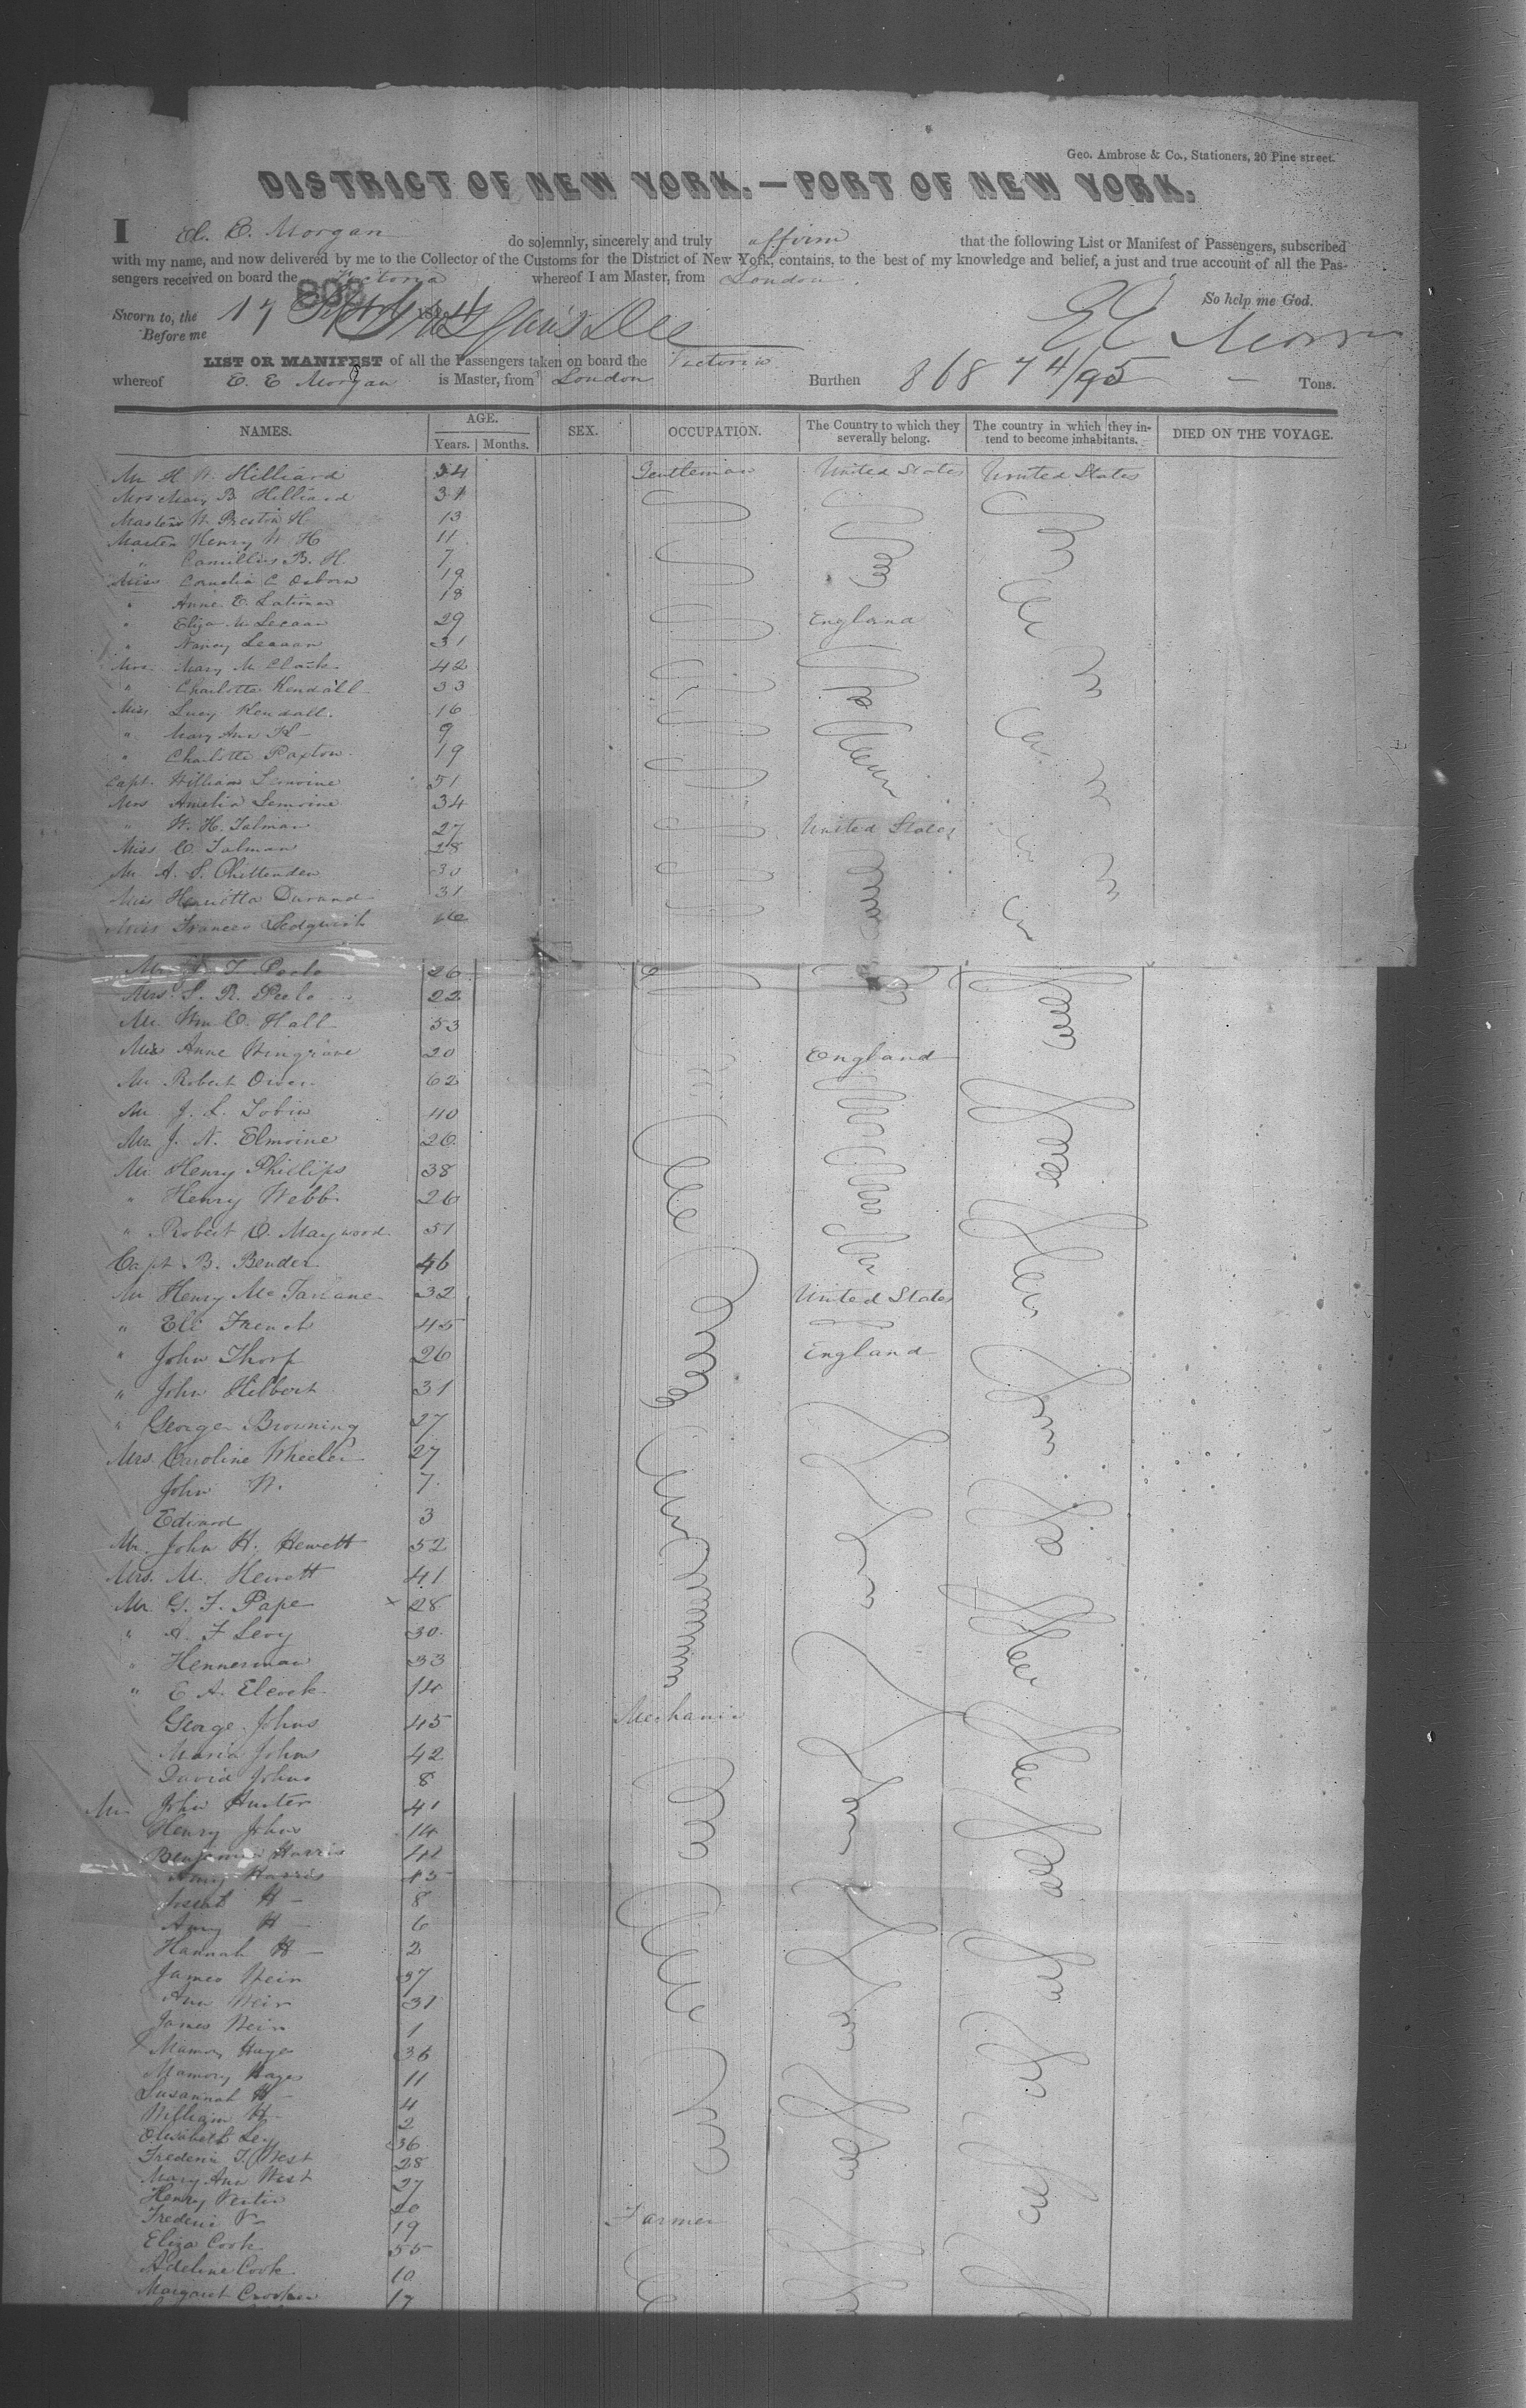 Geo. Ambrose & Co., Stationers, 20 Pine street.
DISTRICT OF NEW YORK.—PORT OF NEW YORK.
I E. E. Morgan do solemnly, sincerely and truly affirm that the following List or Manifest of Passengers, subscribed
with my name, and now delivered by me to the Collector of the Customs for the District of New York, contains, to the best of my knowledge and belief, a just and true account of all the Pas-
sengers received on board the Victoria whereof I am Master, from London.
802
So help me God.
Sworn to, the 17 184
Before me
E E Morgan
LIST OR MANIFEST of all the Passengers taken on board the Victoria
whereof E. E Morgan is Master, from London Burthen 868 74/95 – Tons.
NAMES. AGE. Years. Months. SEX. OCCUPATION. The Country to which they severally belong. The country in which they intend to become inhabitants. DIED ON THE VOYAGE.
Mr H. W. Hilliard 34 Gentleman United States United States
Mrs Mary B. Hilliard 31
Master W. Preston H 13
Master Henry W. H 11
" Camillus B. H. 7
Miss Cornelia C Osborn 19
" Anne E. Latimer 18
" Eliza M. Lecaan 29 England
" Nancy Lecaan 31
Mrs Mary M Clark 42
" Charlotte Kendall 33
Miss Lucy Kendall. 16
" Mary Ann K– 9
" Charlotte Paxton 19
Capt. William Lemoine 51
Mrs Amelia Lemoine 34
" W. H. Talman 27 United States
Miss C. Talman 28
Mr A. S. Chittenden 30
Miss Henrietta Durand 31
Miss Frances Sedgwick
Mr T Peele 26
Mrs. S. R. Peele 22
Mr. Wm C. Hall 53
Miss Anne Wingrave 20 England
Mr Robert Owen 62
Mr J. L. Tobin 40
Mr. J. N. Elmoine 26
Mr Henry Phillips 38
" Henry Webb 26
" Robert C. Maywood 51
Capt B. Bender 46
Mr Henry McFarlane 32 United States
" Eli French 45
" John Thorp 26 England
" John Hibbert 31
" George Browning 27
Mrs. Caroline Wheeler 27
John W. 7
Edward 3
Mr. John H. Hewett 52
Mrs. M. Hewett 41
Mr G. F. Pape × 28
" A. F Levy 30
" Hennerman 33
" E A. Elcock 14
George Johns 45 Mechanic
Maria Johns 42
David Johns 8
Mr John Hunter 41
Henry Johns 14
Benjamin Harris
Amy Harris 45
Josiah H – 8
Amy H – 6
Hannah H – 2
James Weir 37
Ann Weir 31
James Weir 1
Mamory Hayes 36
Mamory Hayes 11
Susannah H – 4
William H – 2
Elisabeth Ley 36
Frederic T. West 28
Mary Ann West 27
Henry 20
Frederic 19 Farmer
Eliza Cook 55
Adeline Cook 10
Margaret Crooker 17